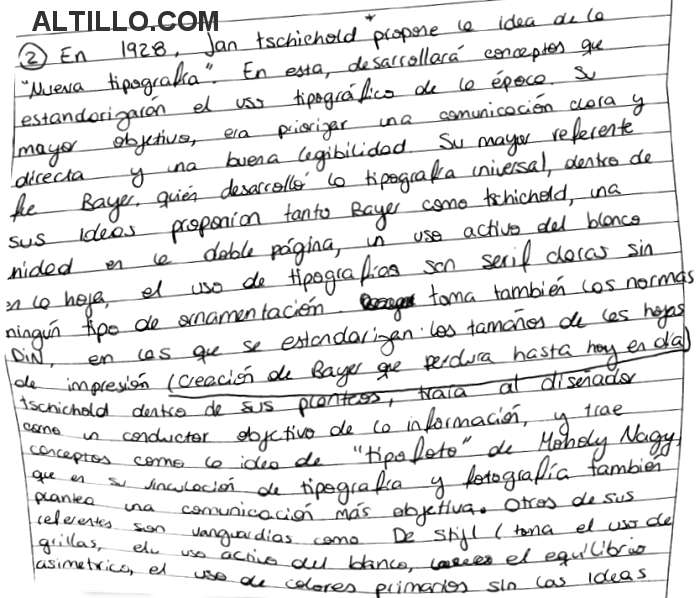 ALTILLO.COM
② En 1928, Jan tschichold * propone la idea de la
"Nueva tipografía". En esta, desarrollará conceptos que
estandarizarán el uso tipográfico de la época. Su
mayor objetivo, era priorizar una comunicación clara y
directa y una buena legibilidad. Su mayor referente
fue Bayer, quién desarrolló la tipografía universal, dentro de
sus ideas proponían tanto Bayer como tschichold, una
unidad en la doble página, un uso activo del blanco
en la hoja, el uso de tipografías san serif claras sin
ningún tipo de ornamentación. toma también las normas
DIN, en las que se estandarizan los tamaños de las hojas
de impresión (creación de Bayer que perdura hasta hoy en día)
tschichold dentro de sus planteos, trata al diseñador
como un conductor objetivo de la información, y trae
conceptos como la idea de "tipofoto" de Moholy Nagy,
que en su vinculación de tipografía y fotografía también
plantea una comunicación más objetiva. Otros de sus
referentes son vanguardias como De Stijl (toma el uso de
grillas, el uso activo del blanco, el equilibrio
asimetrico, el uso de colores primarios sin las ideas